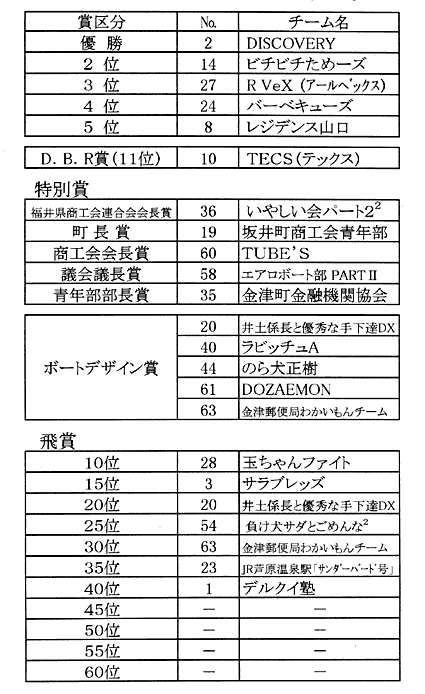 賞区分 No. チーム名
優勝 2 DISCOVERY
2位 14 ビチビチためーズ
3位 27 RVeX(アールベックス)
4位 24 バーベキューズ
5位 8 レジデンス山口
D.B.R賞(11位) 10 TECS(テックス)
特別賞
福井県商工会連合会会長賞 36 いやしい会パート2²
町長賞 19 坂井町商工会青年部
商工会会長賞 60 TUBE'S
議会議長賞 58 エアロボート部 PARTⅡ
青年部部長賞 35 金津町金融機関協会
ボートデザイン賞
20 井土係長と優秀な手下達DX
40 ラビッチュA
44 のら犬正樹
61 DOZAEMON
63 金津郵便局わかいもんチーム
飛賞
10位 28 玉ちゃんファイト
15位 3 サラブレッズ
20位 20 井土係長と優秀な手下達DX
25位 54 負け犬サダとごめんな²
30位 63 金津郵便局わかいもんチーム
35位 23 JR芦原温泉駅「サンダーバード号」
40位 1 デルクイ塾
45位 — —
50位 — —
55位 — —
60位 — —